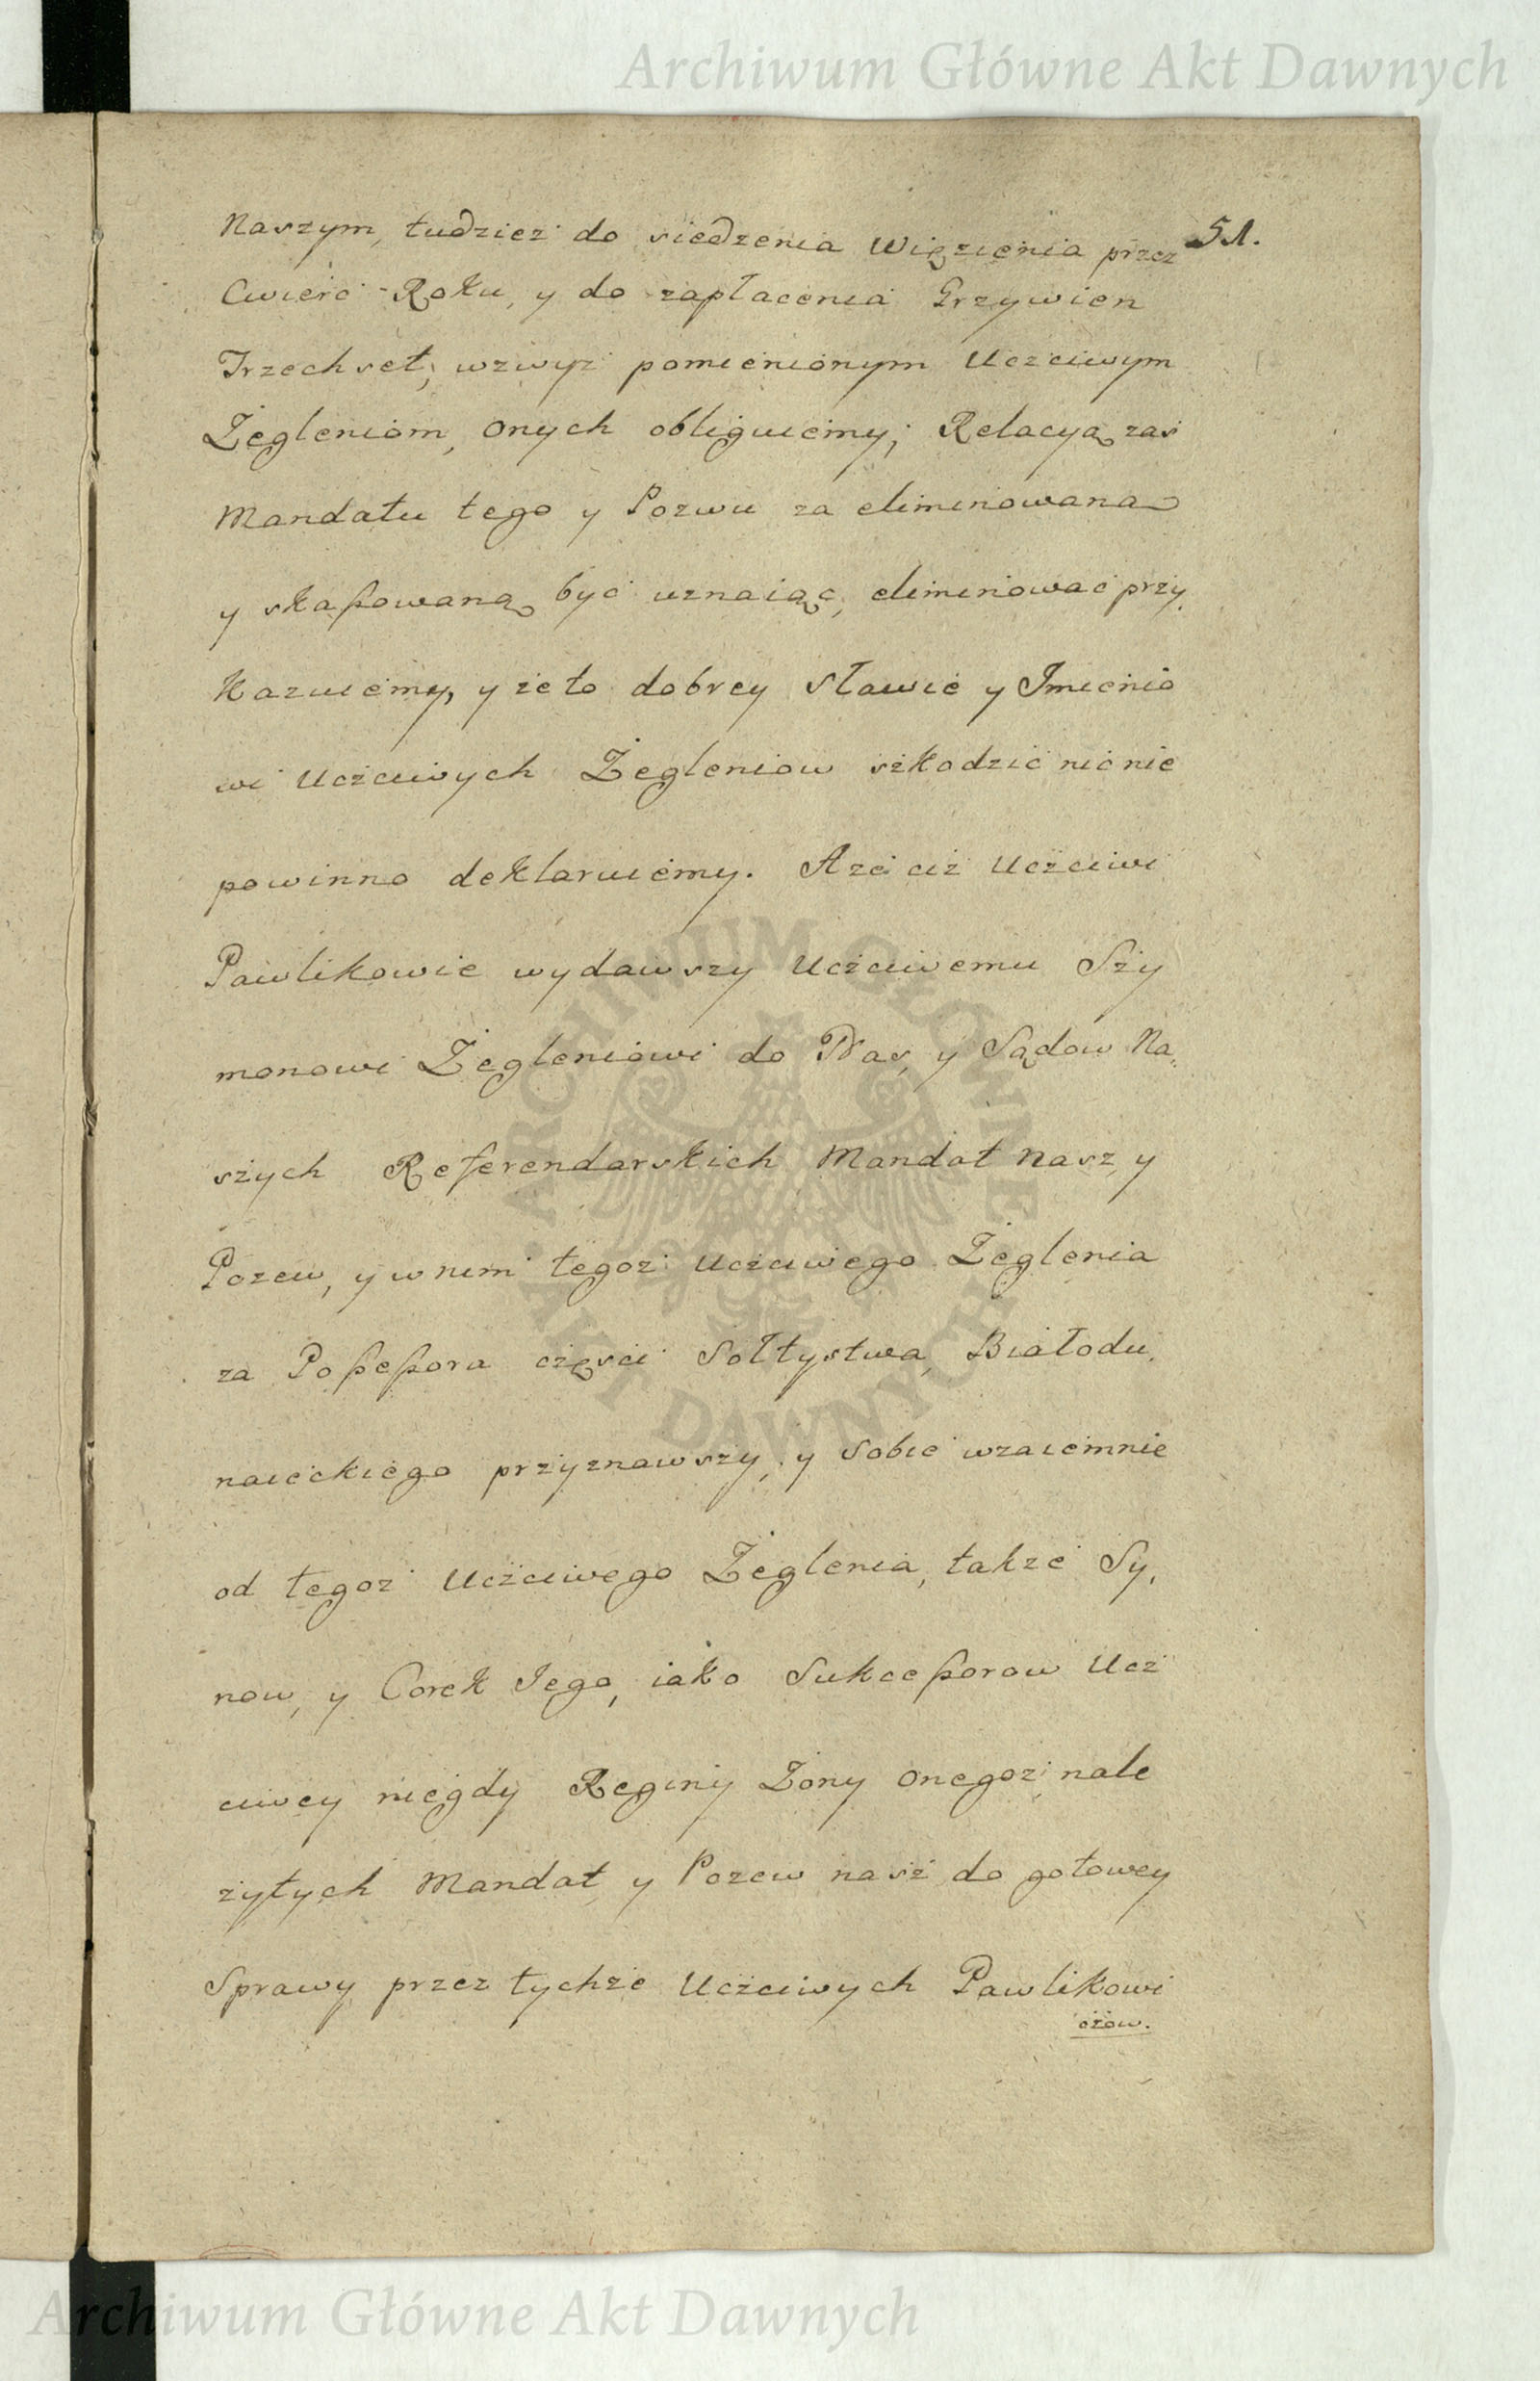 Archiwum Główne Akt Dawnych
51.
Naszym, tudzież do siedzenia Więzienia przez
Cwierć Roku, y do zapłacenia Grzywien
Trzechset, wzwyż pomienionym Uczciwym
Żegleniom, onych obliguiemy; Relacyą zaś
Mandatu tego y Pozwu za eliminowaną
y skassowaną być uznaiąc, eliminować przy,
kazuiemy, y że to dobrey sławie y Imienio
wi Uczciwych Żegleniow szkodzić nic nie
powinno deklaruiemy. A że ciż Uczciwi
Pawlikowie wydawszy Uczciwemu Szy
monowi Żegleniowi do Nas, y Sądow Na,,
szych Referendarskich Mandat nasz y
Pozew, y w nim tegoż Uczciwego Żeglenia
za Possessora części Sołtystwa Białodu,
naieckiego przyznawszy, y sobie wzaiemnie
od tegoż Uczciwego Żeglenia, także Sy,
now, y Corek Iego, iako Sukcessorow Ucz
ciwey niegdy Reginy Żony onegoż nale
żytych Mandat y Pozew nasz do gotowey
Sprawy przez tychże Uczciwych Pawlikowi
czow.
ARCHIWUM GŁÓWNE · AKT DAWNYCH ·
Archiwum Główne Akt Dawnych